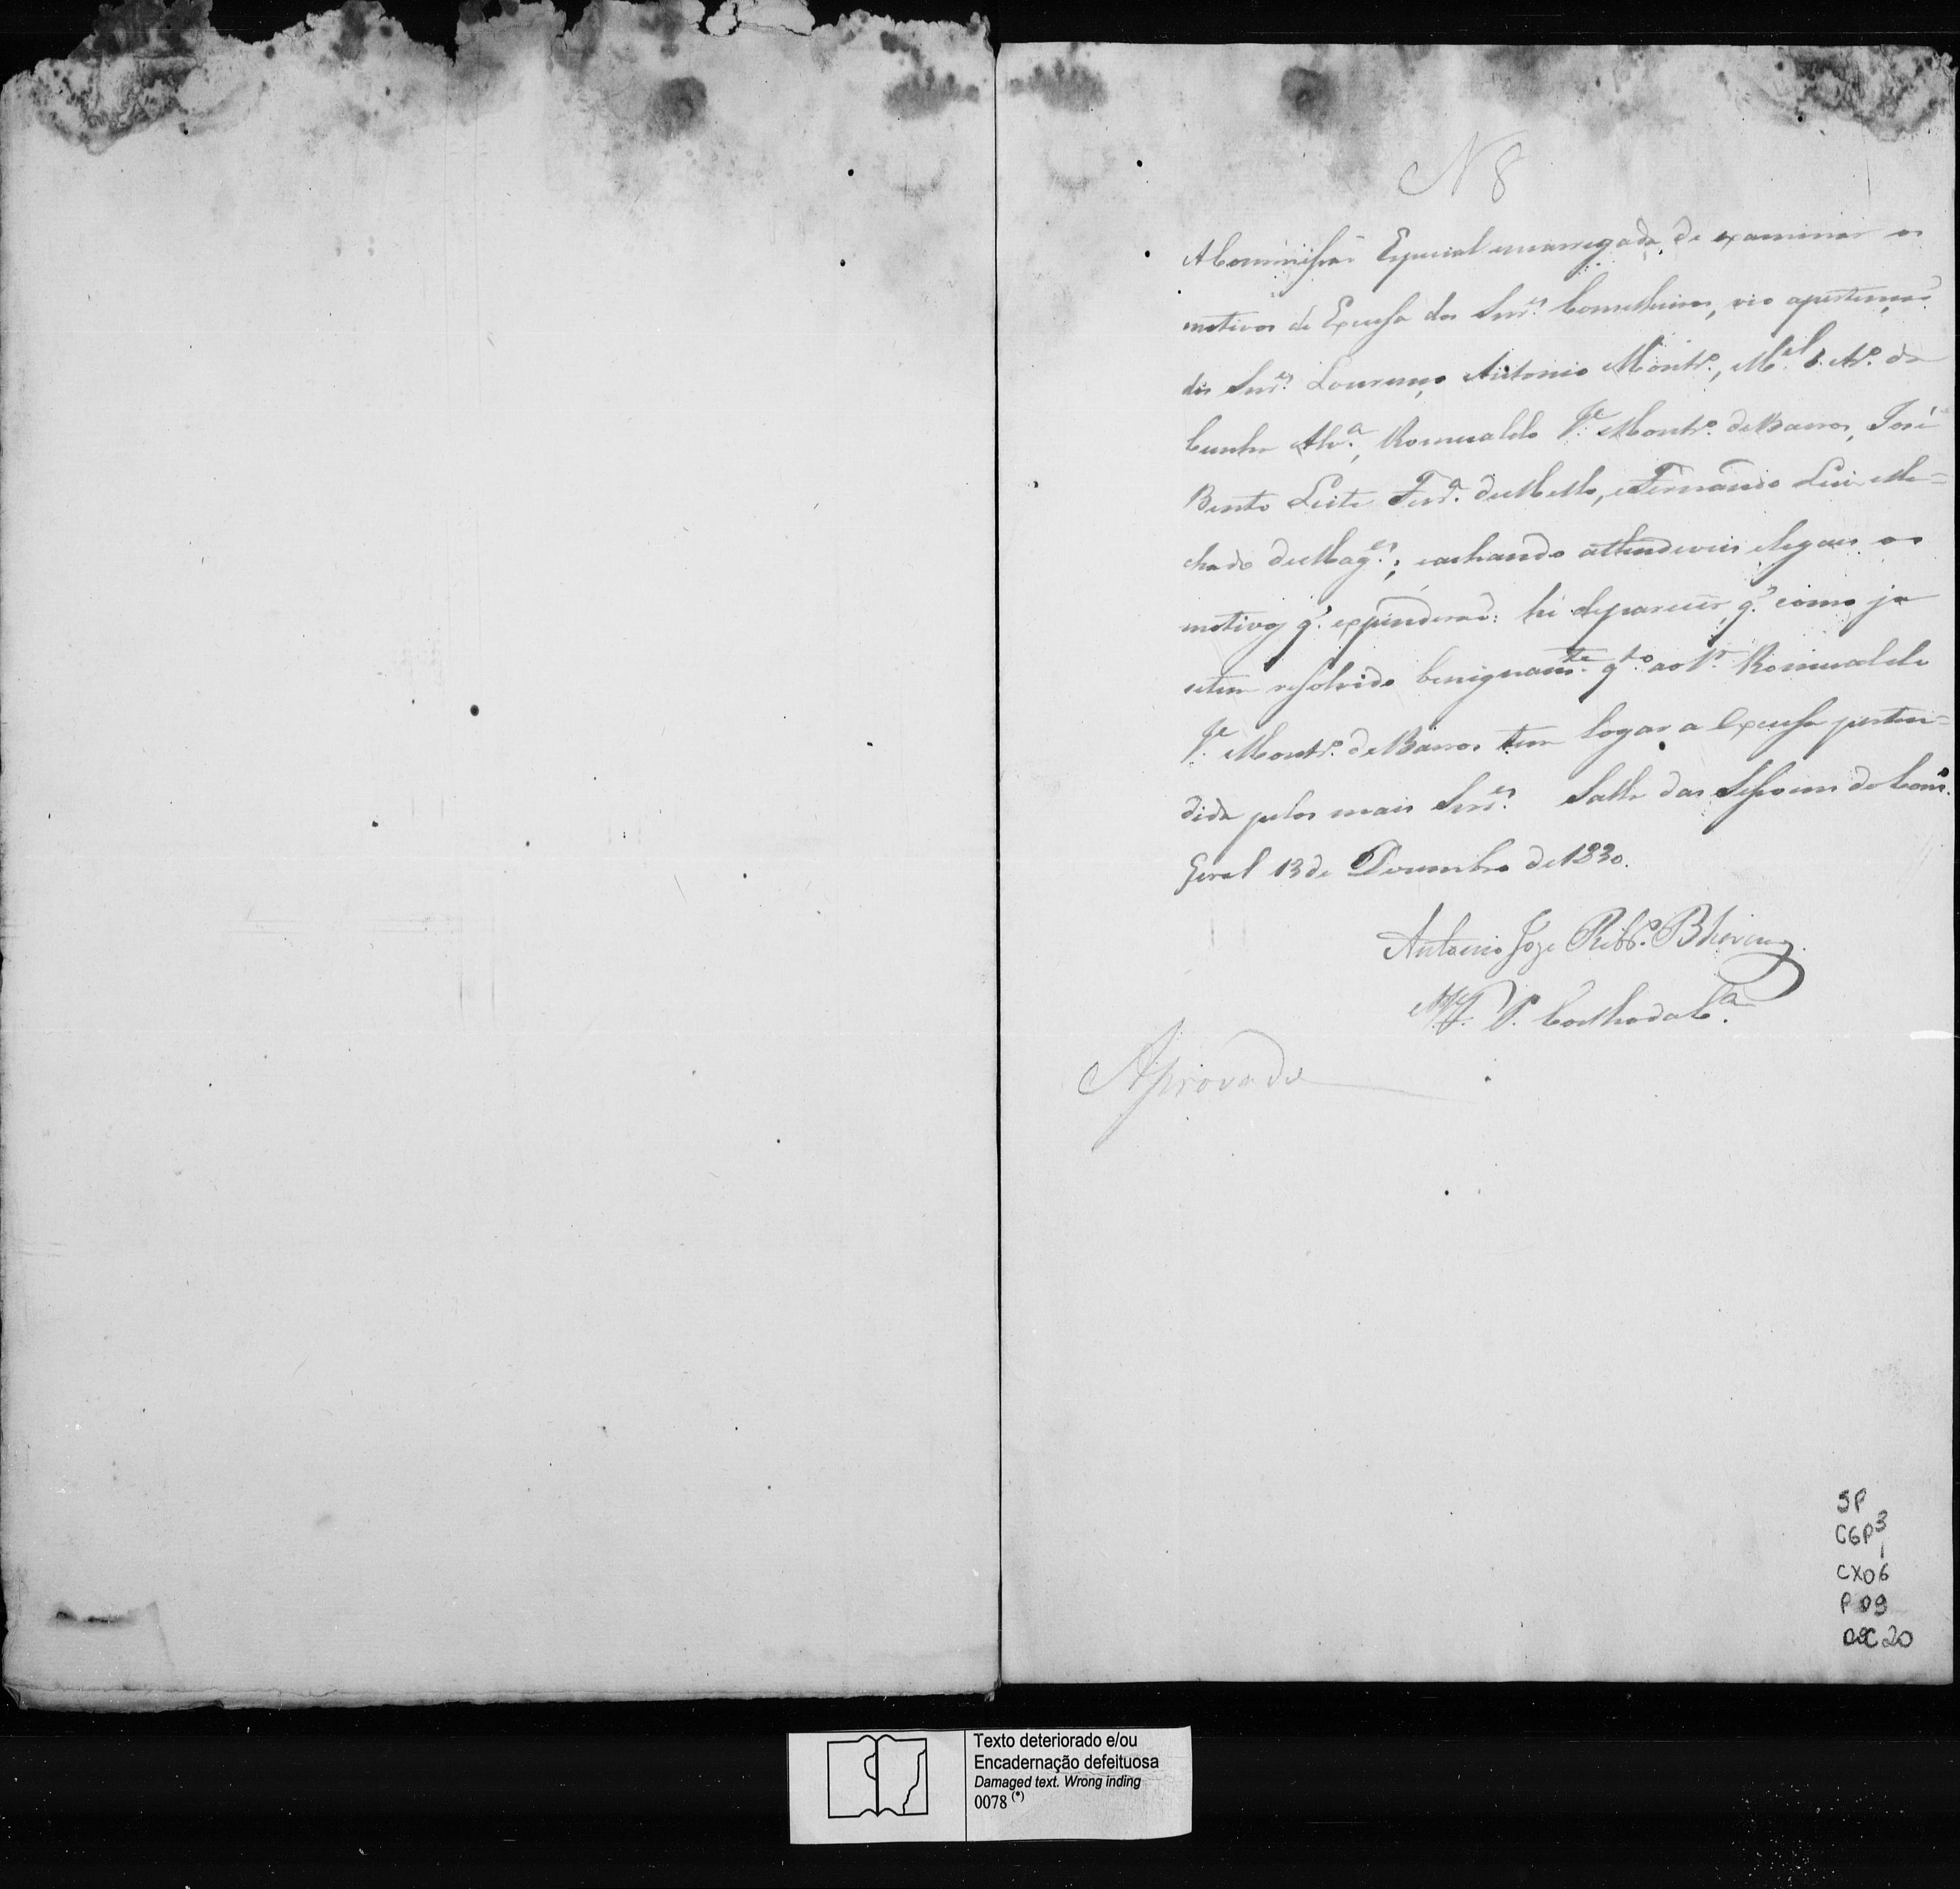 N 8
A Commissaõ Especial encarregada de examinar os
motivos de Excusa dos Snr.es Conselheiros, vio as pertençoẽs
dos Snr.es Lourenço Antonio Montr.o, M.el I. Ar.o da
Cunha Alv.a, Romualdo J.e Montr.o de Barros, José
Bento Leite Ferr.a de Mello, e Fernando Luis Ma=
chado de Mag.es; e achando attendiveis e legaes os
motivos q.' expenderaõ: hé de parecer, q.' como ja
se tem resolvido benignam.te q.to ao Sr. Romualdo
J.e Montr.o de Barros tem logar a Excusa perten=
dida pelos mais Snr.es Salla das Sessoens do Cons.o
Geral 13 de Dezembro de 1830.
Antonio Joze Ribr.o Bhering
M. J. P. Coelho da C.a
Aprovado
SP
CGP 3
1
CX06
P 09
DOC 20
Texto deteriorado e/ou
Encadernação defeituosa
Damaged text. Wrong inding
0078 (*)